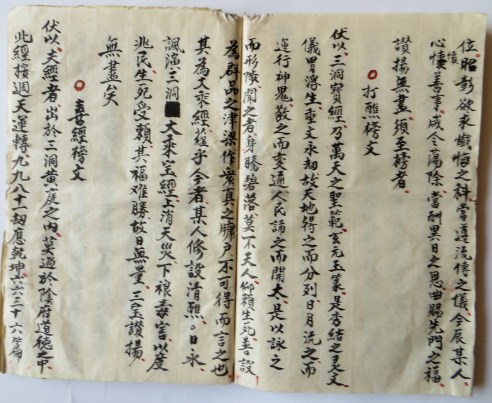 位昭彰欲求懺悔之科當遵流傳之儀今辰某人
心懷善事咸今蕩除當酬異日之恩曲賜先門之福
讚揚無盡須至榜者
打醮榜文
伏以三洞寶經乃萬天之聖範玄元玉籙是秀結之灵文
儀胃浮生垂文永劫故天地得之而分列日月流之而
運行神鬼敬之而变通人民誦之而開太是以詠之
而形陵聞之者身騰碧落莫不天人仰賴生死普設
為群品之津梁作眾真之牖户不可得而言之也
其為文乘經蘊乎今者某人修設清醮〇日永
諷演三洞大乘宝經上消天災下禳毒害以度
兆民生死受賴其福难勝故曰無量三宝讚揚
無盡矣
〇喪經榜文
伏以夫經者出於三洞黄庭之内莫過於陰府道德之中
此經按週天運轉九九八十一劫應乾坤六六三十六